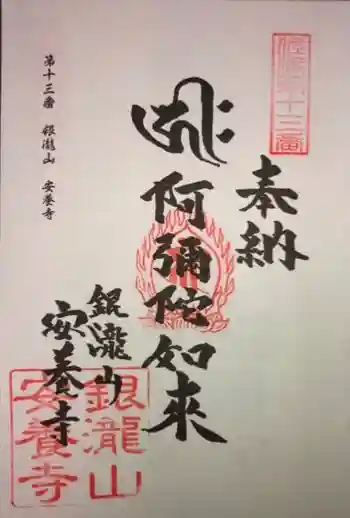 奉納
阿彌陀如來
銀瀧山
安養寺
第十三番 銀瀧山 安養寺
第十三番
銀瀧山
安養寺